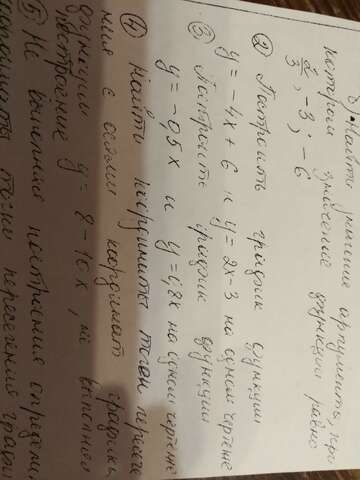 б) Найти значение аргумента, при
котором значение функции равно
2/3; -3; -6
② Построить график функции
y = -4x + 6 и y = 2x - 3 на одном чертеже
③ Построить график функции
y = -0,5x и y = 1,8x на одном чертеже
④ Найти координаты точки пересе
ния с осями координат графика
функции y = 8 - 10x, не выполняя
построение
⑤ Не выполняя построения определи
координаты точки пересечения граф